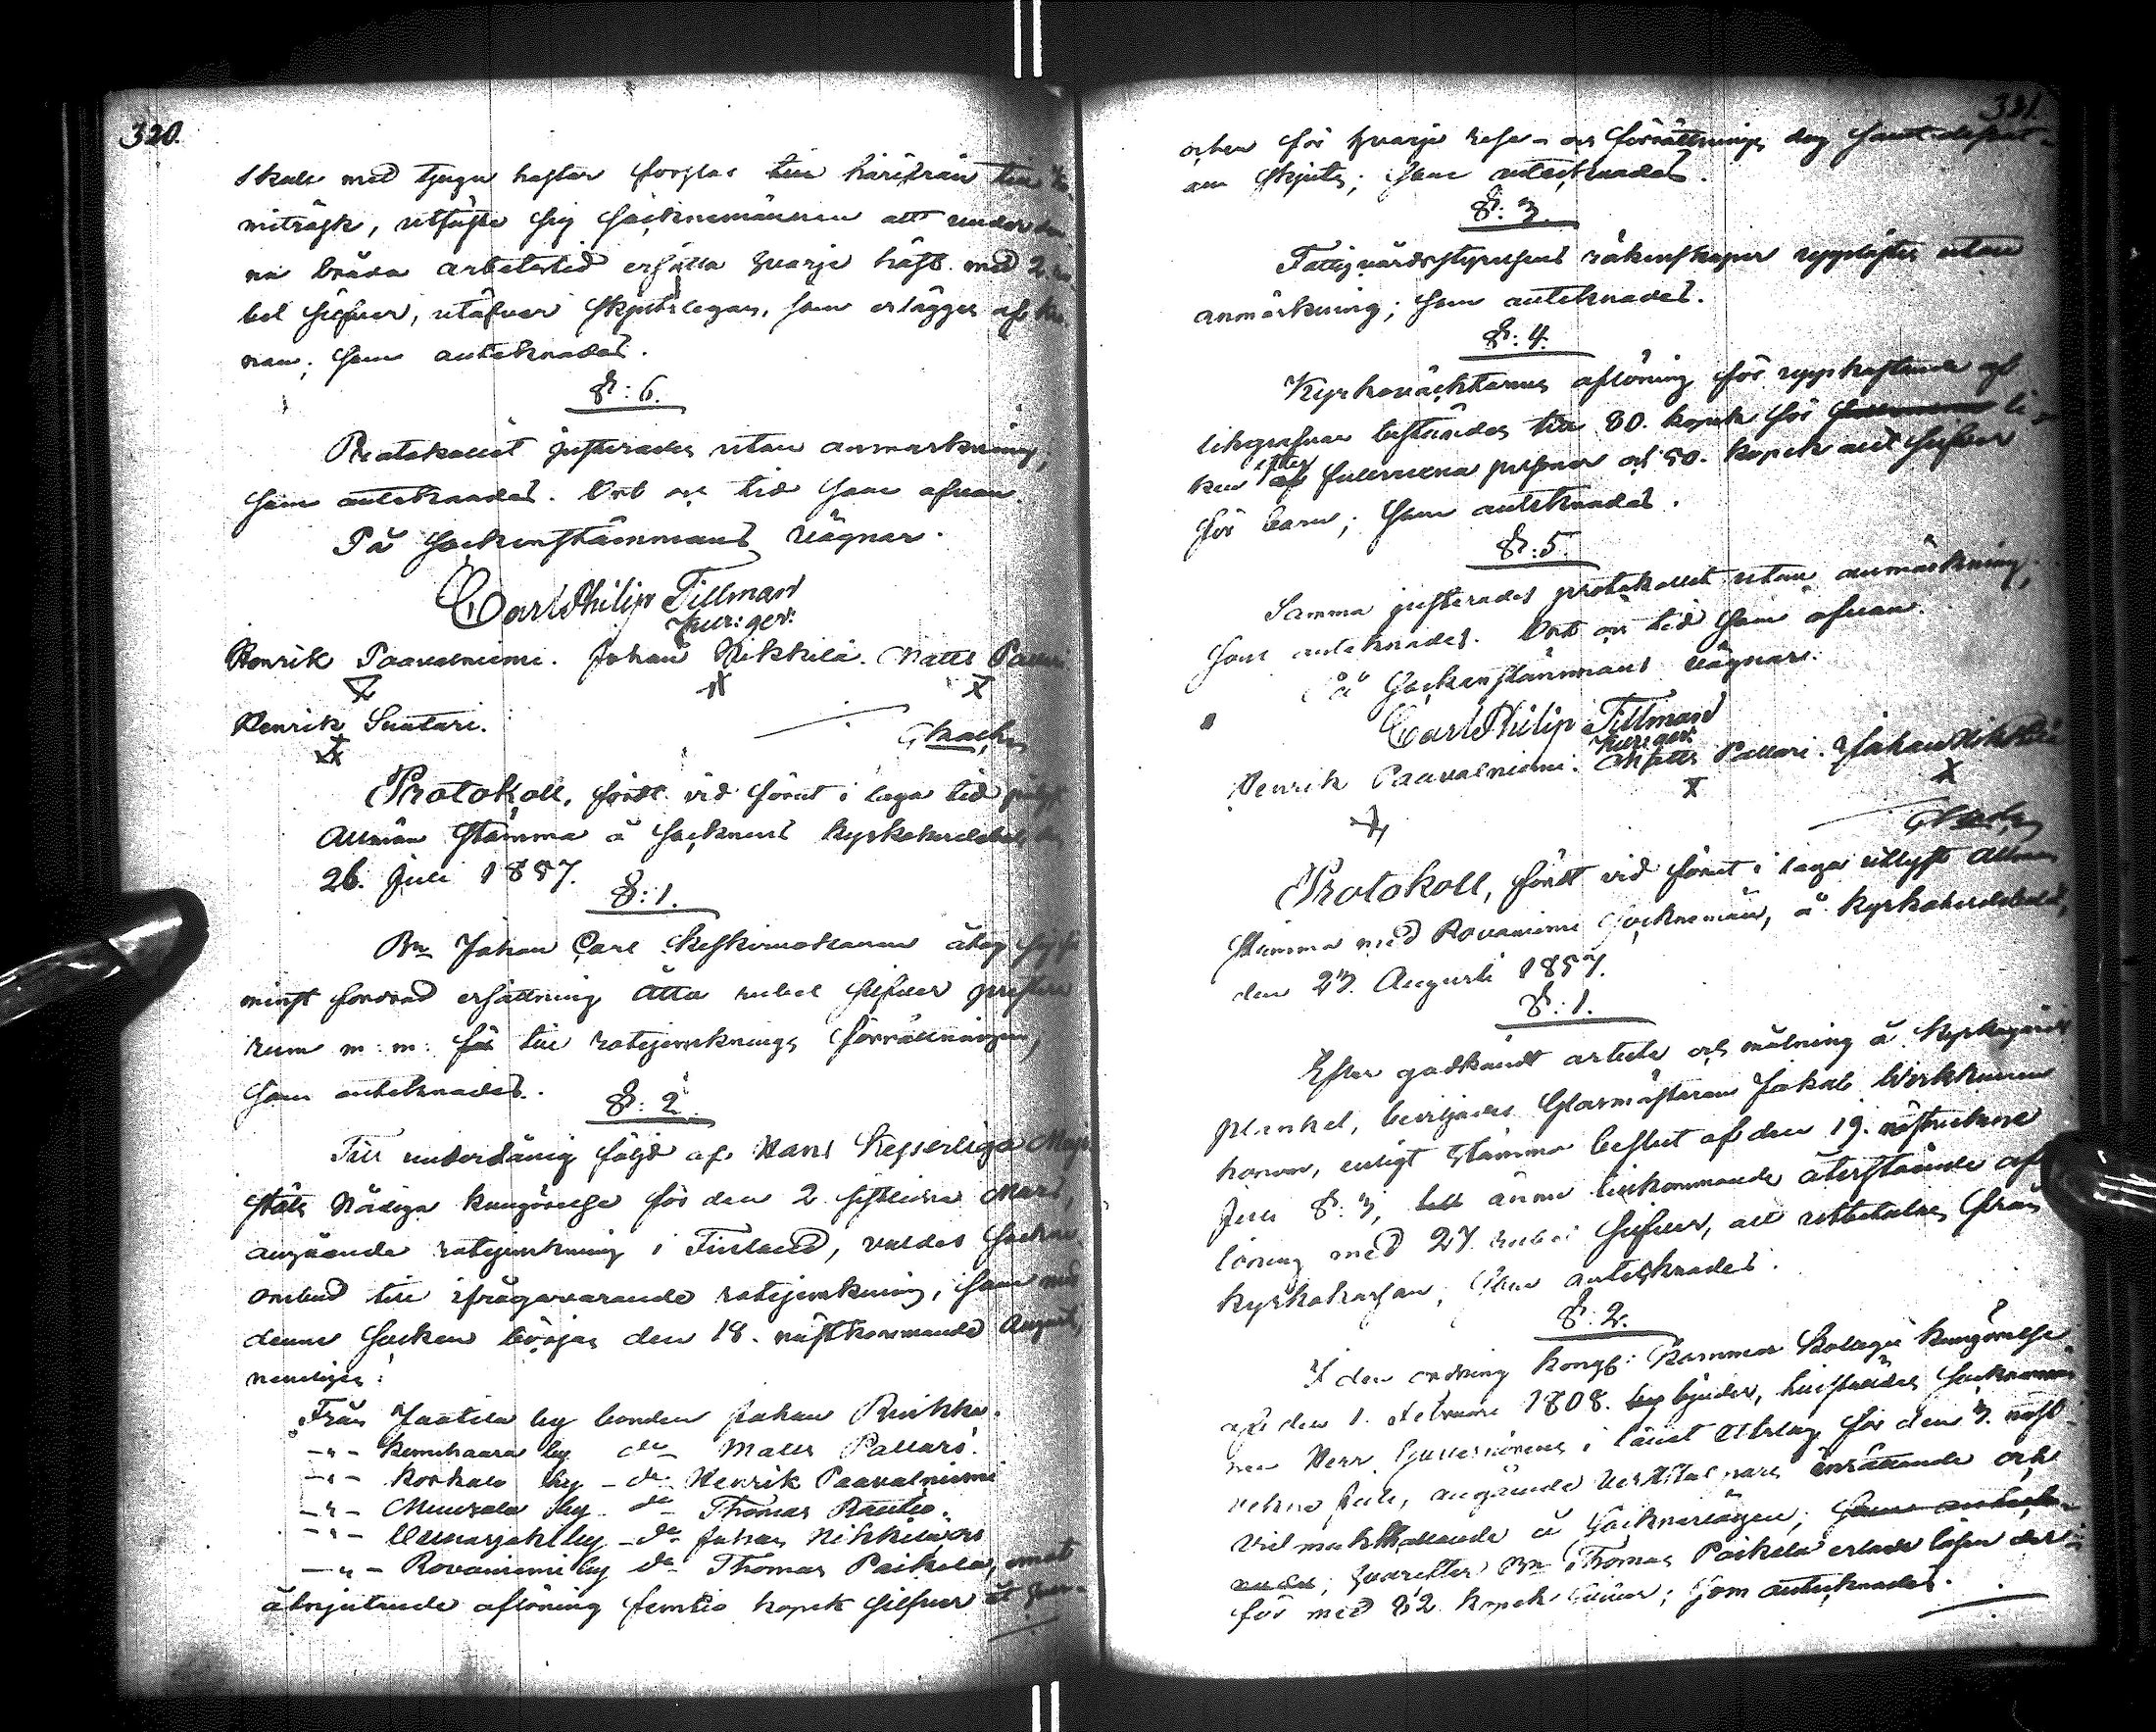 320.
skall med tjugu hästar forslas till härifrån till Ke-
miträsk, utfäste sig Socknemännen att under den-
na bråda arbetstid ersätta hvarje häst med 2 ru-
bel silfver, utöfver skjutslegan, som erlägges af kro-
nan; som antecknades.
§: 6.
Protokollet justerades utan anmärkning;
som antecknades. Ort och tid som ofvan.
På Sockenstämmans vägnar.
Carl Philip Tillman
Henrik Paavalniemi. Johan Nikkilä. Matts Pallari
Henrik Suutari.
Protokoll, fördt vid förut i laga tid
Allmän Stämma å Socknens kyrkoherdebol den
26. Juli 1857.
§: 1.
Bn Johan Carl Keskimokanen åtog sig
minst fordrad ersättning Åtta rubel silfver prestera
rum m: m: för till rotejemknings förrättningen,
som antecknades.
§: 2.
Till underdånig följd af Hans Kejserliga Maje-
stäts Nådiga kungörelse för den 2 sistledne Mars,
angående rotejemkning i Finland, valdes Socken
ombud till ifrågavarande rotejemkning, som med
denna Socken börjas den 18. nästkommande Augusti,
nemligen:
Från Jaatila by bonden Johan Ruikka.
-"- Kemihaara by do Matts Pallari.
-"- Korkalo by -do- Henrik Paavalniemi
-"- Muurola by do Thomas Rautio.
-"- Ounasjoki by -do Johan Nikkilä och
-"- Rovaniemi by do Thomas Paikela, emot
åtnjutande aflöning femtio kopek silfver åt hvar-
321.
och en för hvarje rese- och förrättnings dag samt
an skjuts; som antecknades.
§: 3.
Fattigvårdsstyrelsens räkenskaper upplästes utan
anmärkning; som antecknades.
§: 4.
Kyrkoväktarens aflöning för uppkastande af
likgrafvar bestämdes till 80. kopek för li-
ken efter fullvuxna personer och 50. kopek allt silfver
för barn; som antecknades.
§: 5.
Samma justerades protokollet utan anmärkning;
som antecknades. Ort och tid som ofvan.
På Sockenstämmans vägnar.
Carl Philip Tillman
Henrik Paavalniemi. Matts Pallari. Johan Nikkilä
Protokoll, fördt vid förut i laga utlyst Allmän
Stämma med Rovaniemi Socknemän, å kyrkoherdebolet,
den 23. Augusti 1857.
§: 1.
Efter godkändt arbete och målning å kyrkogårds
planket, beviljades Glasmästaren Jakob
honom, enligt Stämmo beslut af den 19. nästvekne
Juli §: 3, ännu tillkommande återstående af-
löning med 27. rubel silfver, att utbetalas från
kyrkokassan; som antecknades.
§: 2.
I den ordning kongl: Kammar Kollegii kungörelse
af den 1. Februari 1808. bjuder, tillställdes Socknemän-
nen Herr Guvernörens i länet Utslag för den 3. näst-
vekne Juli, angående verststolpars inrättande och
vidmakthållande å Socknevägen;
hvarefter Bn Thomas Paikela erlade lösen der-
för med 82 kopek silfver; som antecknades.